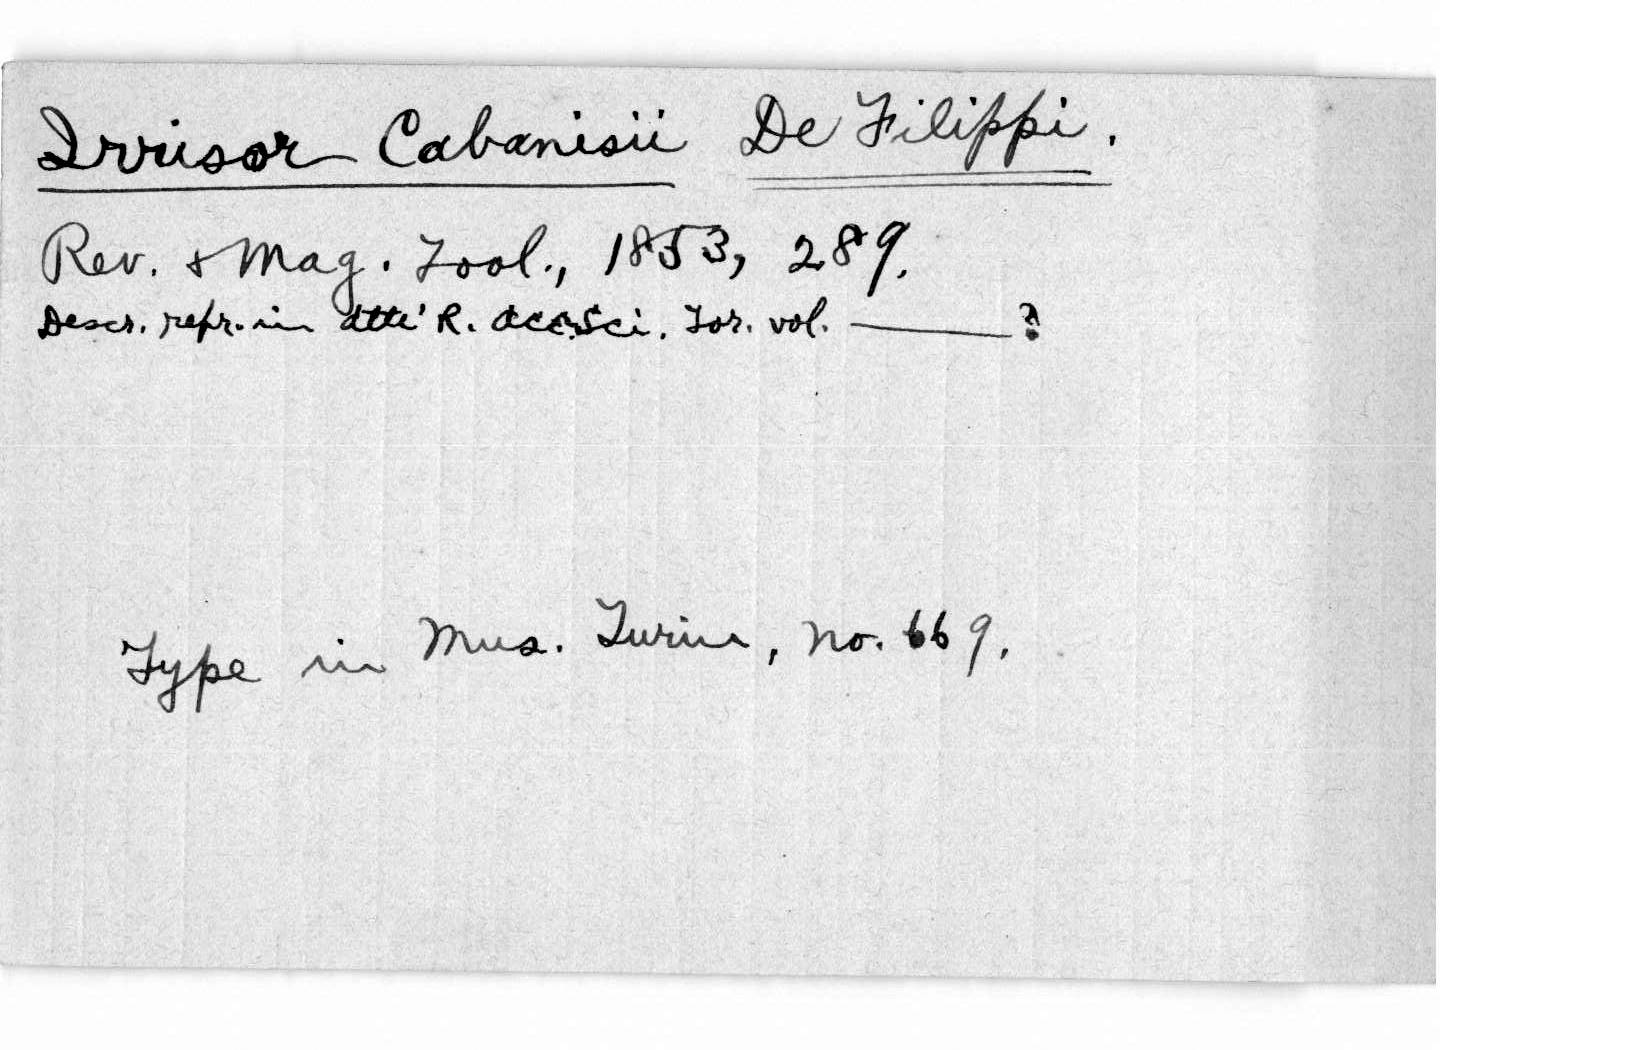 Irrisor Cabanisii De Filippi.
Rev. & Mag. Zool., 1853, 289.
Descr. repr. in Atti R. Acc. Sci. Tor. vol. ———?
Type in Mus. Turin, no. 669.